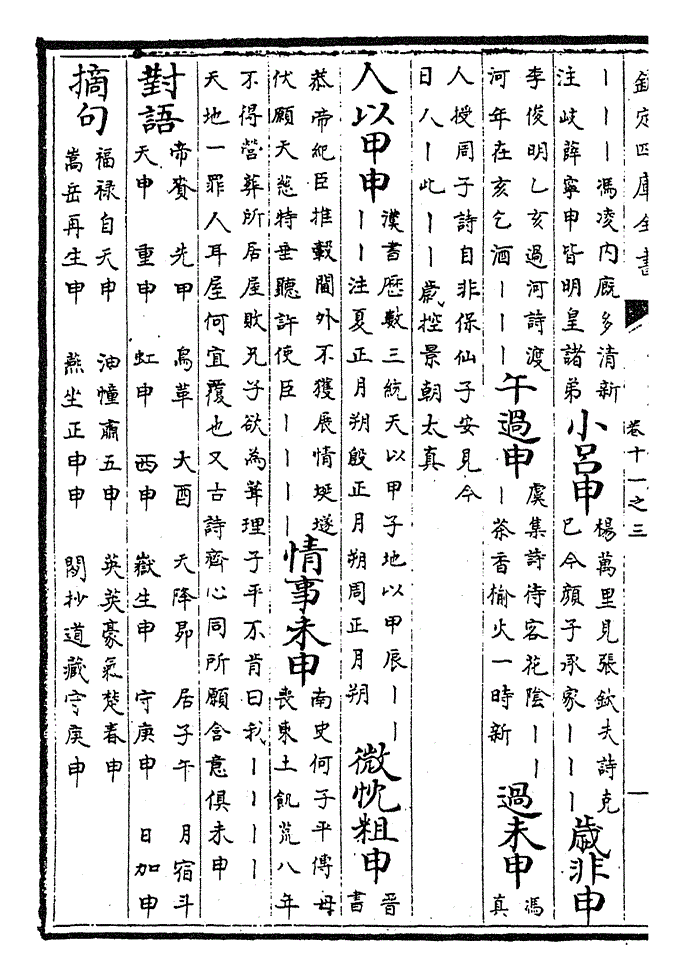 欽定四庫全書 卷十一之三 一
丨丨丨馮凌内廐多清新
注岐薛寧申皆明皇諸弟
小呂申
楊萬里見張欽夫詩克
已今顔子承家丨丨丨
歲非申
李俊明乙亥過河詩渡
河年在亥乞酒丨丨丨
午過申
虞集詩待客花陰丨丨
丨茶香榆火一時新
過未申
馮
真
人授周子詩自非保仙子安見今
日人丨此丨丨歲控景朝太真
人以甲申
漢書歷數三統天以甲子地以甲辰丨丨
丨丨注夏正月朔殷正月朔周正月朔
微忱粗申
晉
書
恭帝紀臣推轂閫外不獲展情埏燧
伏願天慈特垂聽許使臣丨丨丨丨
情事未申
南史何子平傳母
喪東土飢荒八年
不得營葬所居屋敗兄子欲為葺理子平不肯曰我丨丨丨丨
天地一罪人耳屋何宜覆也又古詩齊心同所願含意俱未申
對語
帝賚 先甲 烏革 大酉 天降昴 居子午 月宿斗
天申 重申 虹申 西申 嶽生申 守庚申 日加申
摘句
福禄自天申 油幢肅五申 英英豪氣楚春申
嵩岳再生申 燕坐正申申 閣抄道藏守庚申